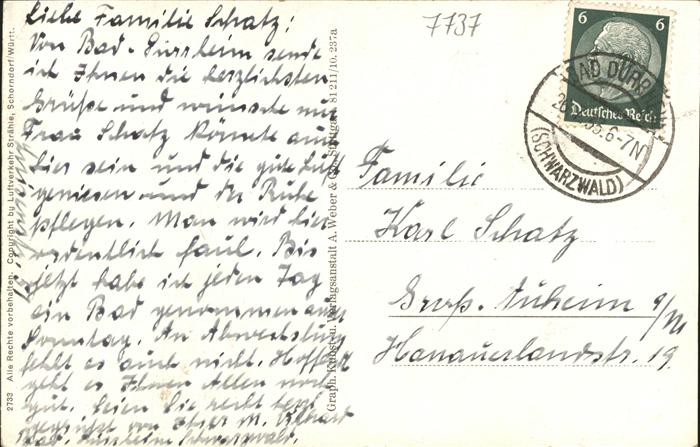 Liebe Familie Schatz!
Von Bad-Dürrheim sende
ich Ihnen die herzlichsten
Grüße und wünsche nur
Frau Schatz könnte auch
hier sein und die gute Luft
geniesen und der Ruhe
pflegen. Man wird hier
ordentlich faul. Bis
jetzt habe ich jeden Tag
ein Bad genommen außer
Sonntag. An Abwechslung
fehlt es auch nicht. Hoffe
geht es Ihnen Allen noch
gut. Seien Sie recht herzl.
gegrüßt von Ihrer M.
Bad. Dürrheim Schwarzwald.
2733 Alle Rechte vorbehalten. Copyright by Luftverkehr Strähle, Schorndorf/Württ.
Graph. Kunst- u. Verlagsanstalt A. Weber & Co. Stuttgart 81211/10. 237a
7737
6 6
Deutsches Reich
BAD DÜRRHEIM
6-7N
(SCHWARZWALD)
Familie
Karl Schatz
Groß-Auheim a/M
Hanauerlandstr. 19